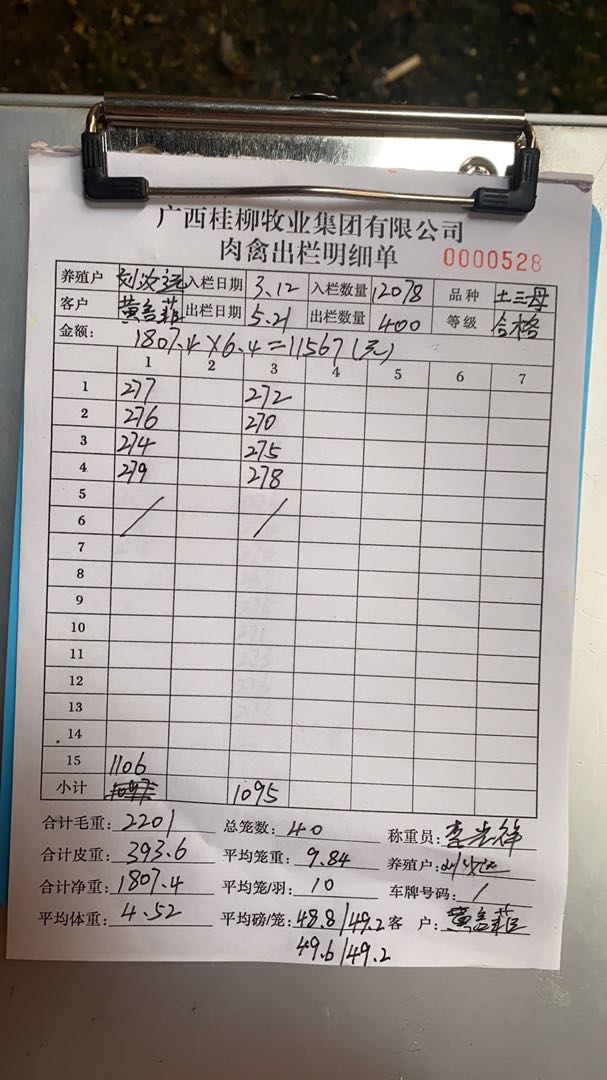 广西桂柳牧业集团有限公司
肉禽出栏明细单 0000528
养殖户 入栏日期 3.12 入栏数量 12078 品种 土三母
客户 出栏日期 5.21 出栏数量 400 等级 合格
金额: 1807.4×6.4=11567(元)
1 2 3 4 5 6 7
1 277 272
2 276 270
3 274 275
4 279 278
5
6 / /
7
8
9
10
11
12
13
14
15 1106
小计 1095
合计毛重: 2201 总笼数: 40 称重员:
合计皮重: 393.6 平均笼重: 9.84 养殖户:
合计净重: 1807.4 平均笼/羽: 10 车牌号码: /
平均体重: 4.52 平均磅/笼: 48.8/49.2 客 户:
49.6/49.2